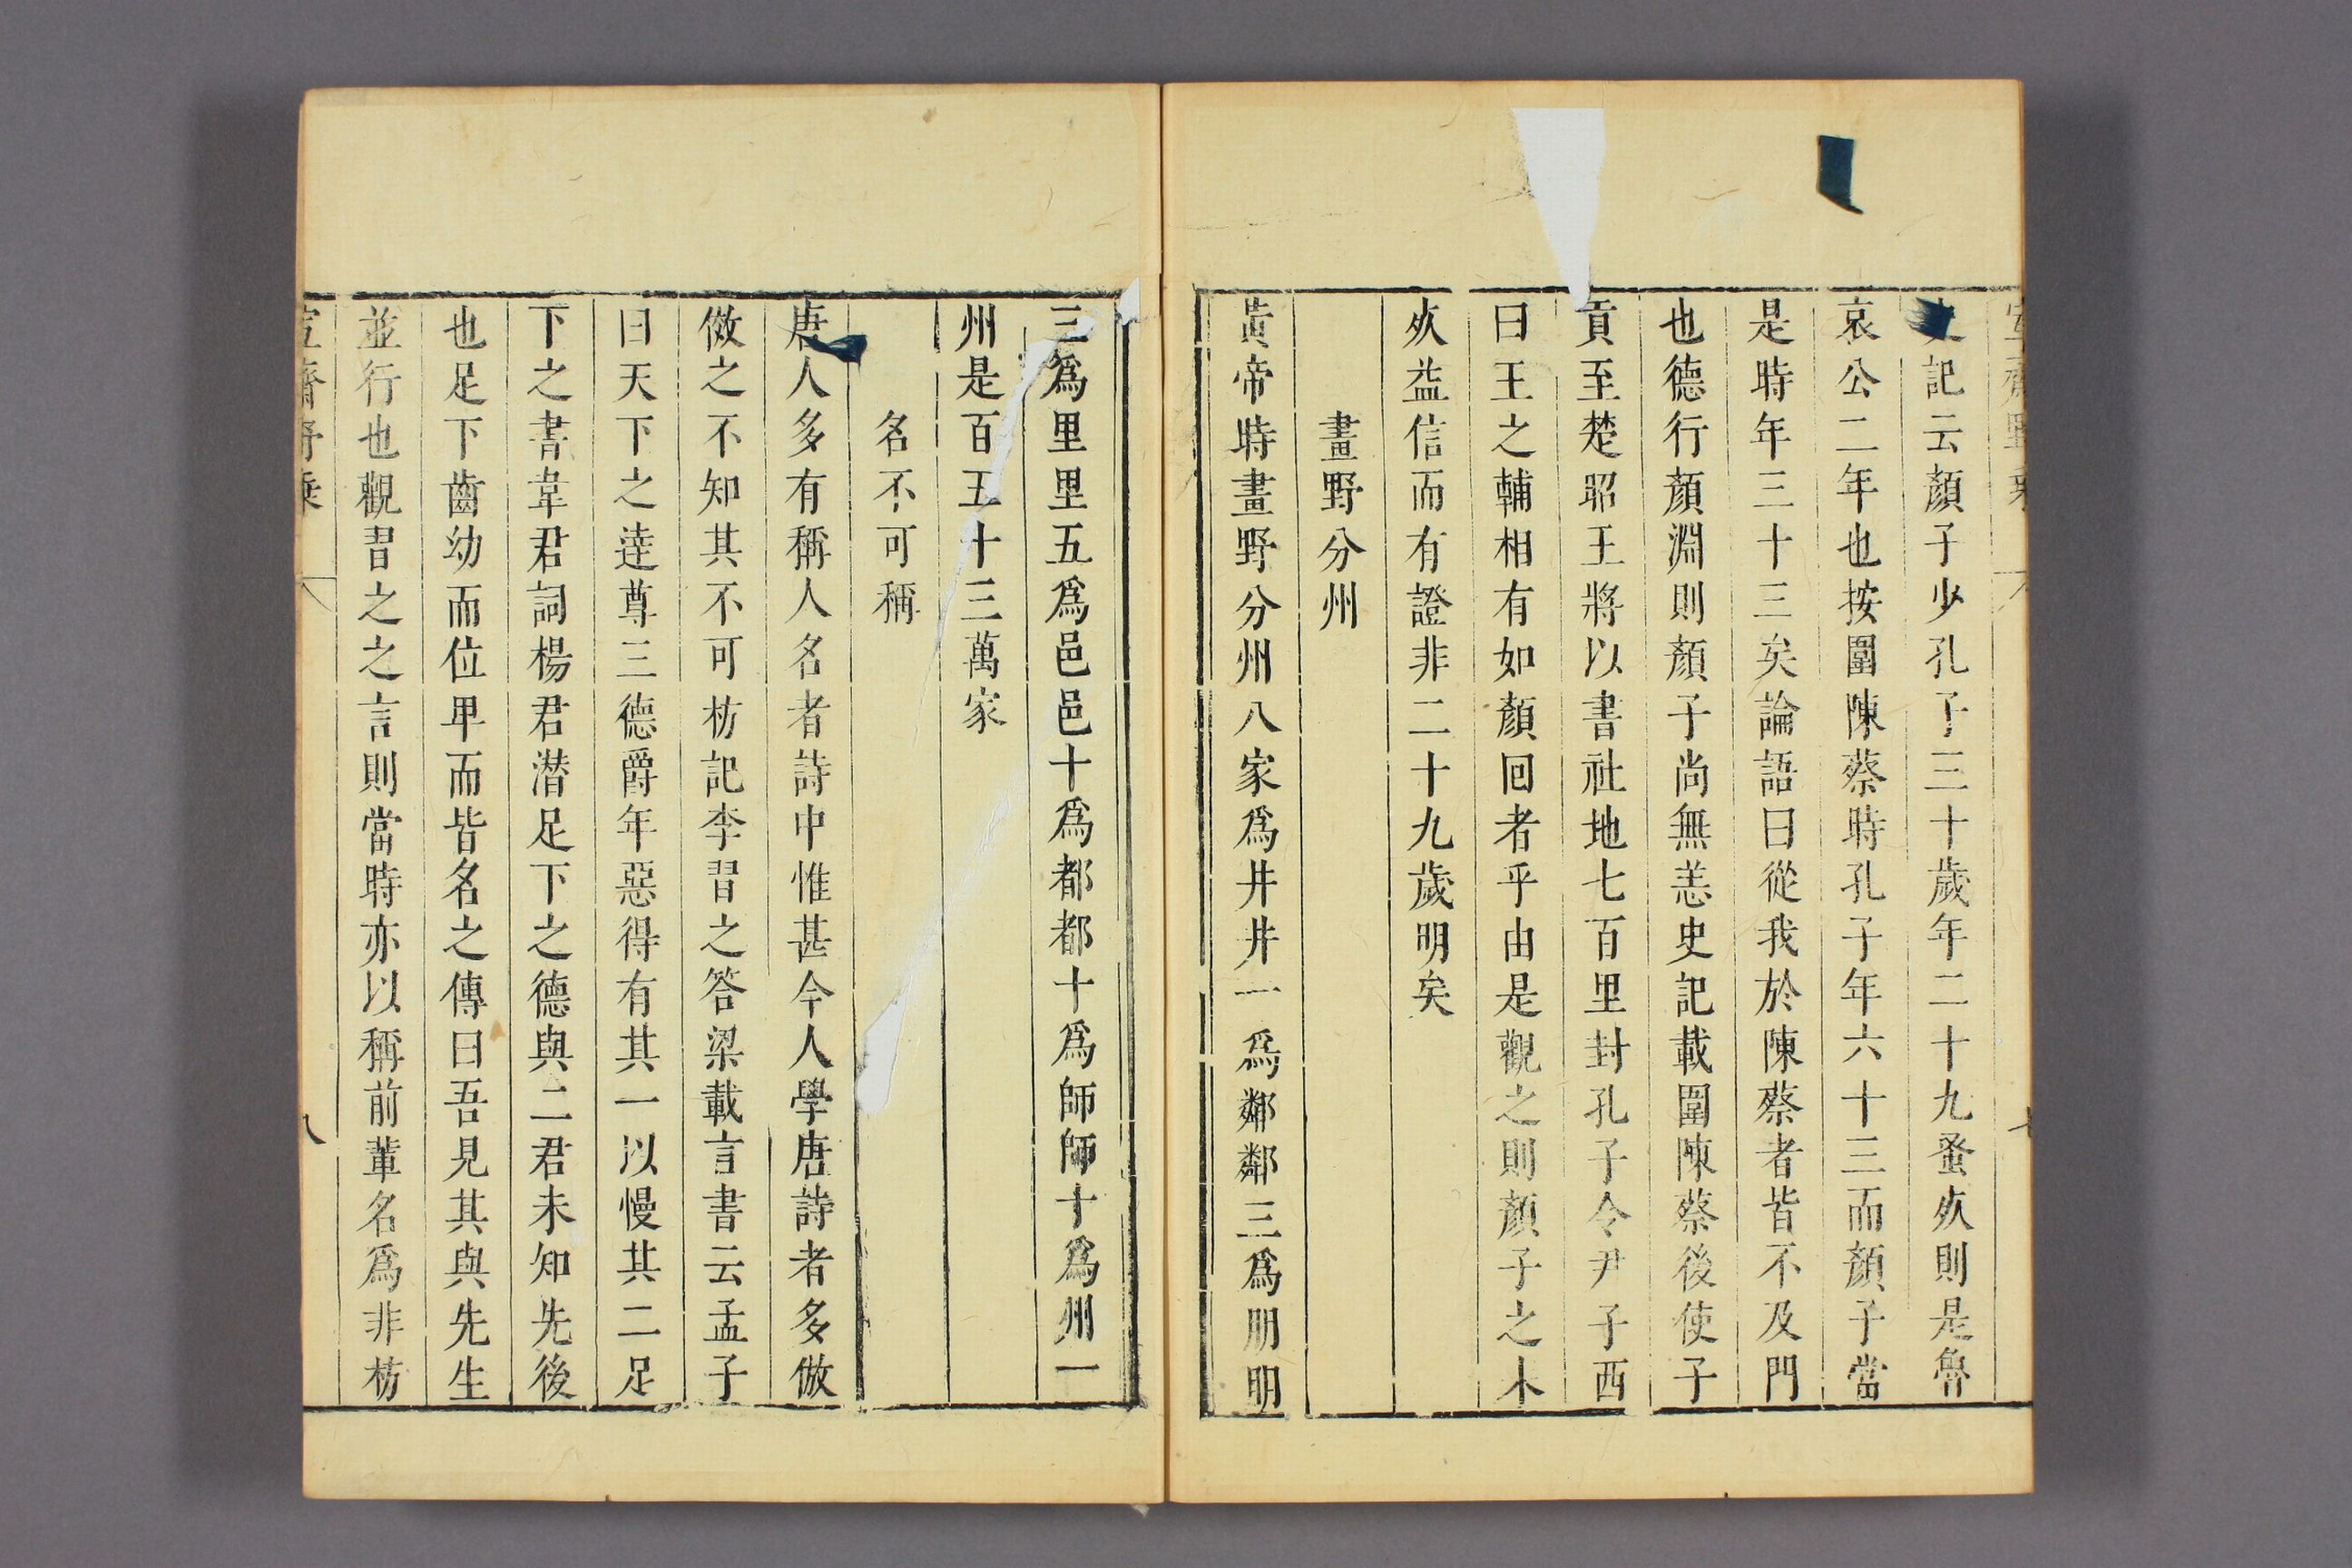 記云顏子少孔子三十歲年二十九蚤㱙則是魯
哀公二年也按圍陳蔡時孔子年六十三而顏子當
是時年三十三矣論語曰從我於陳蔡者皆不及門
也德行顏淵則顏子尚無恙史記載圍陳蔡後使子
貢至楚昭王將以書社地七百里封孔子令尹子西
曰王之輔相有如顏回者乎由是觀之則顏子之不
㱙益信而有證非二十九歲明矣
畫野分州
黃帝時畫野分州八家爲井井一爲鄰鄰三爲朋朋
三爲里里五爲邑邑十爲都都十爲師師十爲州一
州是百五十三萬家
名不可稱
唐人多有稱人名者詩中惟甚今人學唐詩者多倣
傚之不知其不可枋記李習之答梁載言書云孟子
曰天下之達尊三德爵年惡得有其一以慢其二足
下之書韋君詞楊君潛足下之德與二君未知先後
也足下齒幼而位卑而皆名之傳曰吾見其與先生
並行也觀習之之言則當時亦以稱前輩名爲非枋
八